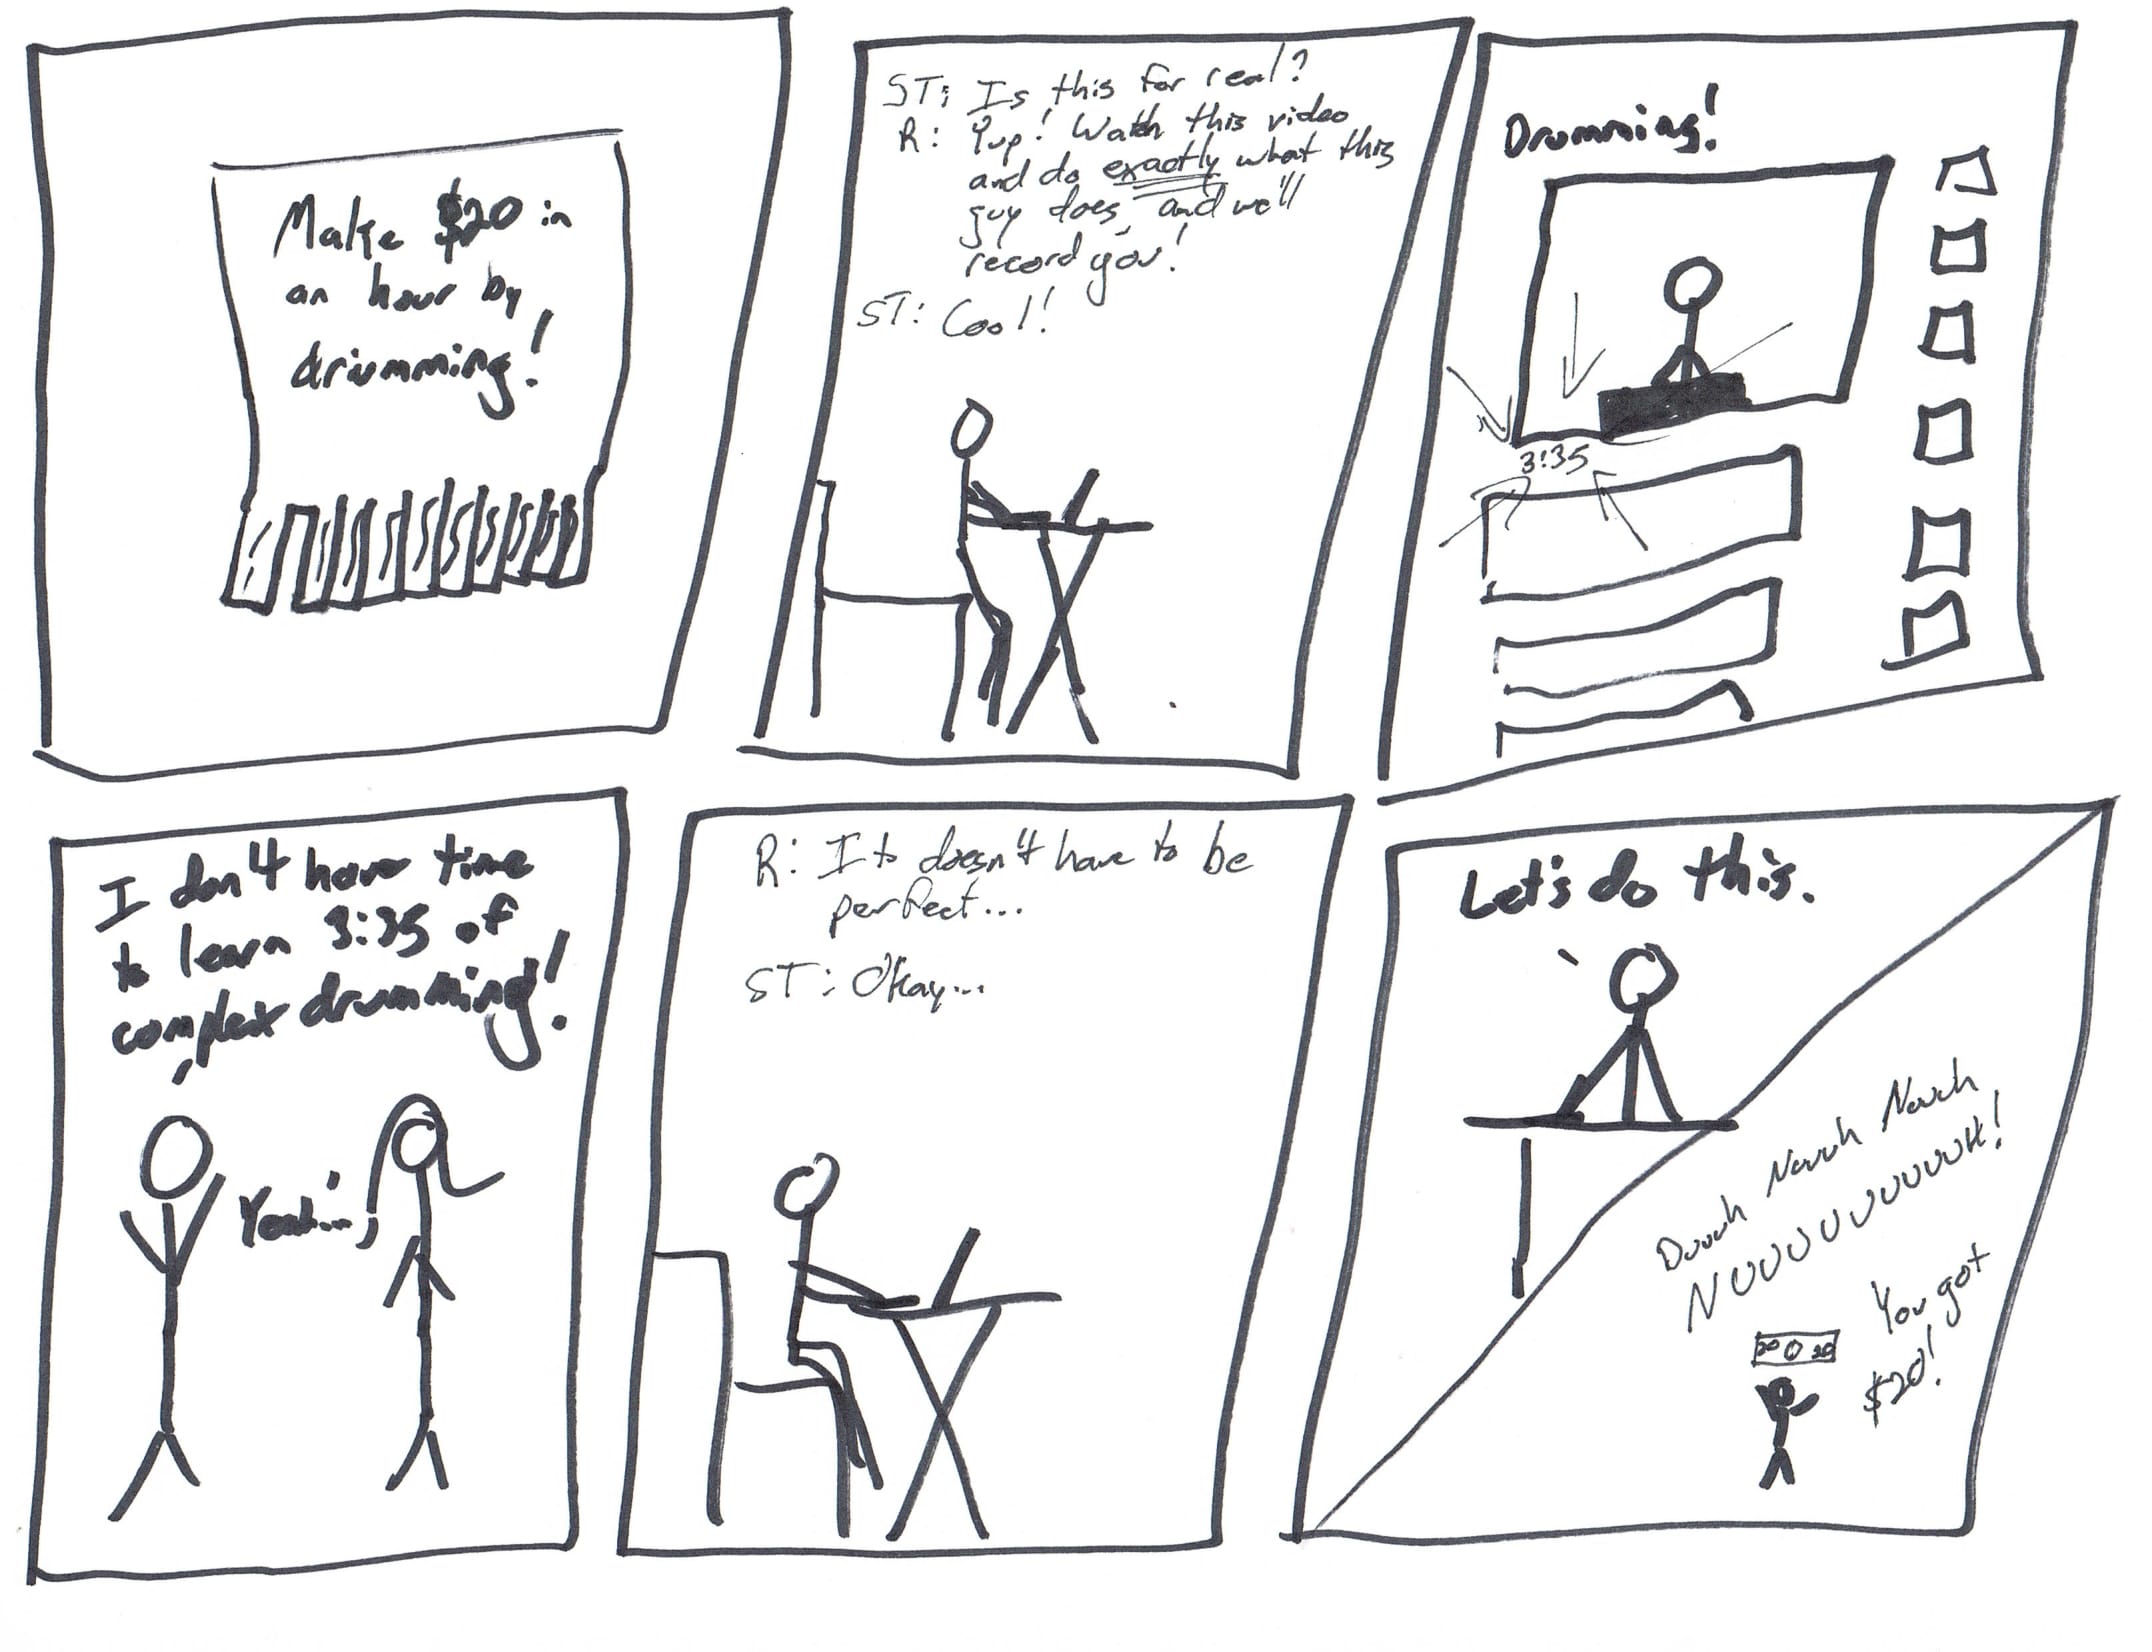 Make $20 in
an hour by
drumming!
ST: Is this for real?
R: Yup! Watch this video
and do exactly what this
guy does, and we'll
record you!
ST: Cool!
Drumming!
3:35
I don't have time
to learn 3:35 of
complex drumming!
Yeah...
R: It doesn't have to be
perfect...
ST: Okay...
Let's do this.
Duuuh Nuuuh Nuuh
NUUUUUUUUUUH!
You got
$20!
20 20